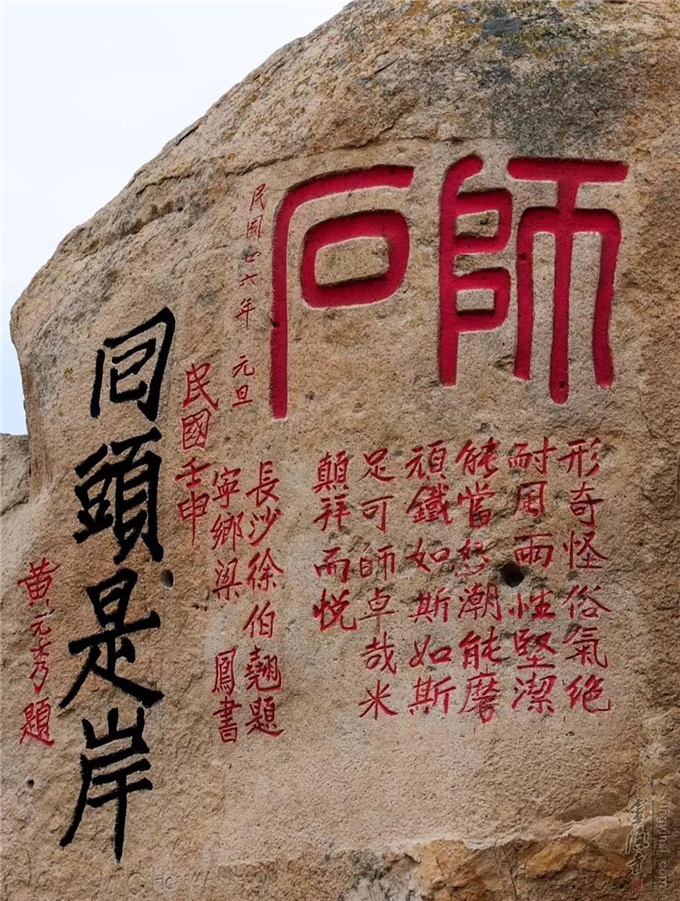 師石
形奇怪俗氣絶
耐風雨性堅潔
能當怒潮能磨
頑鐵如斯如斯
足可師卓哉米
顛拜而悦
長沙徐伯翹題
寧鄉梁 鳳書
民國壬申
民国廿六年 元旦
囘頭是岸
黄元秀題